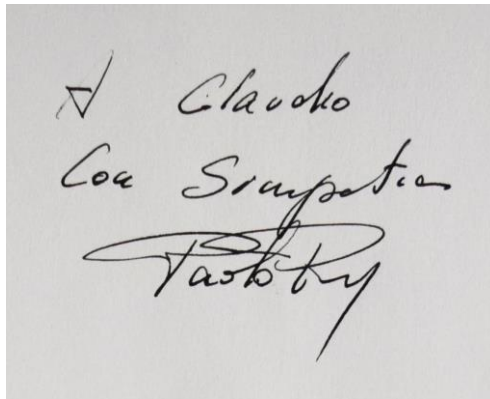 A Claudio
Con Simpatia
Paolo